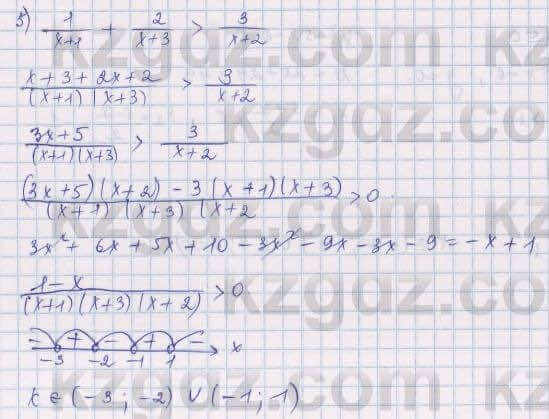 5) 1/(x+1) + 2/(x+3) > 3/(x+2)
(x+3+2x+2)/((x+1)(x+3)) > 3/(x+2)
(3x+5)/((x+1)(x+3)) > 3/(x+2)
((3x+5)(x+2)-3(x+1)(x+3))/((x+1)(x+3)(x+2) > 0
3x²+6x+5x+10-3x²-9x-3x-9=-x+1
(1-x)/((x+1)(x+3)(x+2)) > 0
- + - + -
-3 -2 -1 1 x
x ∈ (-3; -2) ∪ (-1; 1)
kzgdz.com
kzgdz.com
kzgdz.com
kzgdz.com